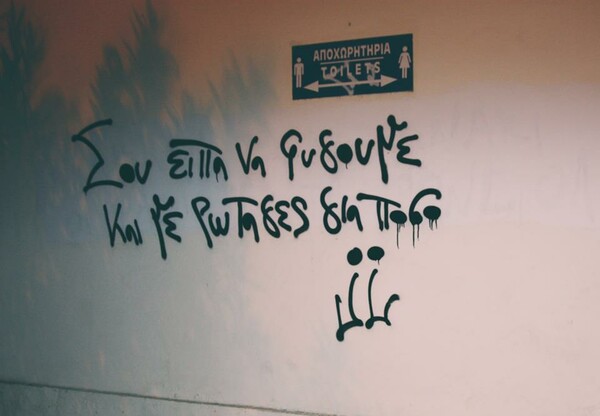 ΑΠΟΧΩΡΗΤΗΡΙΑ
TOILETS
Σου ειπα να φυγουμε
Και με ρωταγες για ποσο